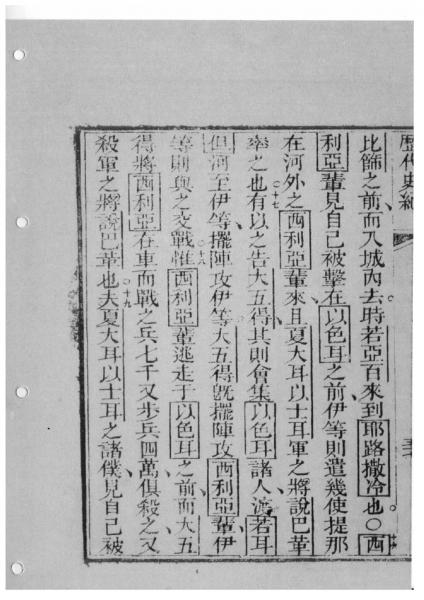 歷代史紀
比篩之前而入城內去時若亞百來到耶路撒冷也〇西
利亞輩見自己被擊在以色耳之前伊等則遣幾使提那
在河外之西利亞輩來且夏大耳以士耳軍之將說巴革
牽之也〇十七有以之告大五得其則會集以色耳諸人渡若耳
但河至伊等擺陣攻伊等大五得既擺陣攻西利亞輩伊
等則與之交戰〇十八惟西利亞輩逃走于以色耳之前而大五
得將西利亞在車而戰之兵七千又步兵四萬俱殺之又
殺軍之將說巴革也〇十九夫夏大耳以士耳之諸僕見自己被